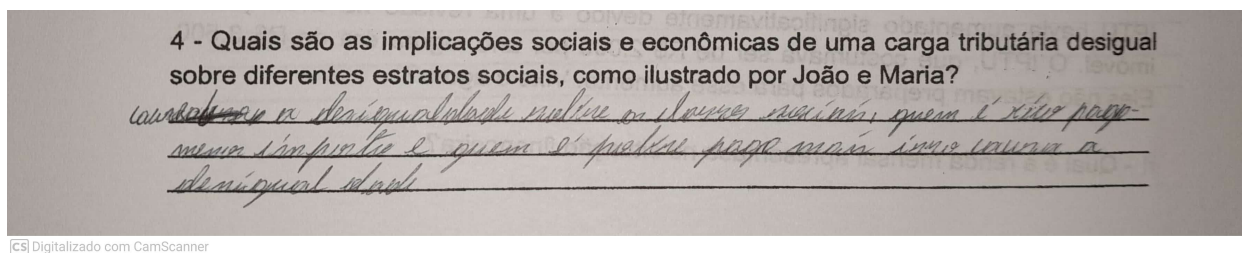 4 - Quais são as implicações sociais e econômicas de uma carga tributária desigual
sobre diferentes estratos sociais, como ilustrado por João e Maria?
causa a desigualdade sobre as classes sociais, quem é rico paga
menos imposto e quem é pobre paga mais isso causa a
desigual dade
CS Digitalizado com CamScanner